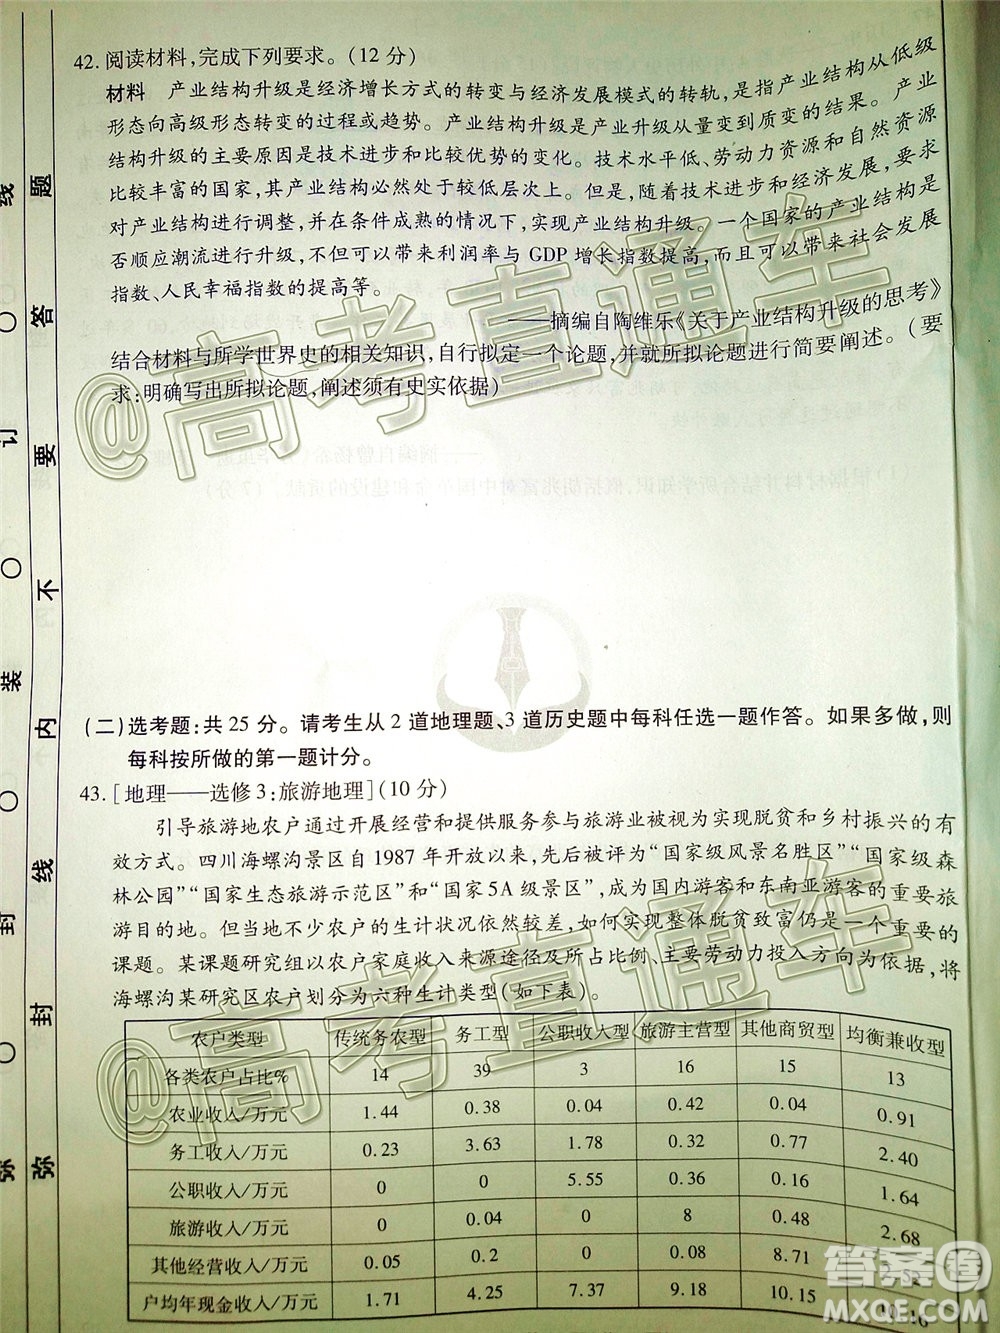 42. 阅读材料,完成下列要求。(12 分)
材料 产业结构升级是经济增长方式的转变与经济发展模式的转轨,是指产业结构从低级
形态向高级形态转变的过程或趋势。产业结构升级是产业升级从量变到质变的结果。产业
结构升级的主要原因是技术进步和比较优势的变化。技术水平低、劳动力资源和自然资源
比较丰富的国家,其产业结构必然处于较低层次上。但是,随着技术进步和经济发展,要求
对产业结构进行调整,并在条件成熟的情况下,实现产业结构升级。一个国家的产业结构是
否顺应潮流进行升级,不但可以带来利润率与 GDP 增长指数提高,而且可以带来社会发展
指数、人民幸福指数的提高等。
——摘编自陶维乐《关于产业结构升级的思考》
结合材料与所学世界史的相关知识,自行拟定一个论题,并就所拟论题进行简要阐述。(要
求:明确写出所拟论题,阐述须有史实依据)
(二)选考题:共 25 分。请考生从 2 道地理题、3 道历史题中每科任选一题作答。如果多做,则
每科按所做的第一题计分。
43. [地理——选修 3:旅游地理](10 分)
引导旅游地农户通过开展经营和提供服务参与旅游业被视为实现脱贫和乡村振兴的有
效方式。四川海螺沟景区自 1987 年开放以来,先后被评为“国家级风景名胜区”“国家级森
林公园”“国家生态旅游示范区”和“国家 5A 级景区”,成为国内游客和东南亚游客的重要旅
游目的地。但当地不少农户的生计状况依然较差,如何实现整体脱贫致富仍是一个重要的
课题。某课题研究组以农户家庭收入来源途径及所占比例、主要劳动力投入方向为依据,将
海螺沟某研究区农户划分为六种生计类型(如下表)。
农户类型 传统务农型 务工型 公职收入型 旅游主营型 其他商贸型 均衡兼收型
各类农户占比% 14 39 3 16 15 13
农业收入/万元 1.44 0.38 0.04 0.42 0.04 0.91
务工收入/万元 0.23 3.63 1.78 0.32 0.77 2.40
公职收入/万元 0 0 5.55 0.36 0.16 1.64
旅游收入/万元 0 0.04 0 8 0.48 2.68
其他经营收入/万元 0.05 0.2 0 0.08 8.71
户均年现金收入/万元 1.71 4.25 7.37 9.18 10.15
线 订 装 封 弥
题 答 要 不 内 线 封 弥
@高考直通车
@高考直通车
答案圈
MXQE.COM